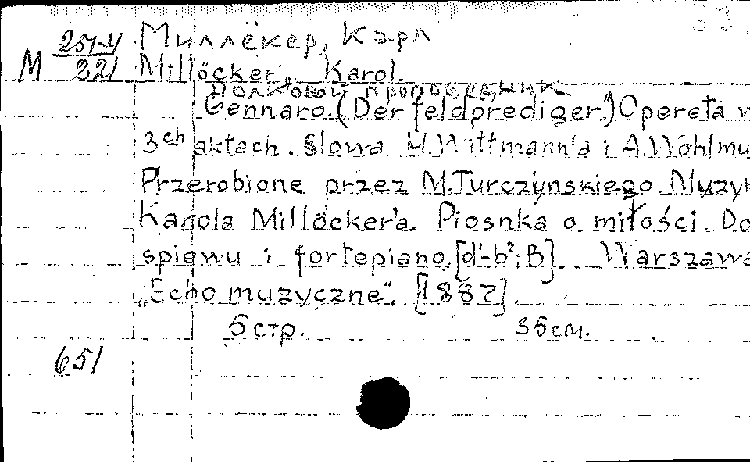 Миллёкер, Карл
М 251-4
821 Millöcker, Karol.
Полковой проповедник
Gennaro. (Der feldprediger.) Opereta w
3ch aktach. Słowa H. Wittmann'a i A. Wohlmu
Przerobione przez M. Turczynskiego. Muzyk
Karola Millöcker'a. Piosnka o miłości. Do
spiewu i fortepiano. [d¹-b²; B]. Warszawa
„Echo muzyczne". [1887]
5 стр. 35 см.
651